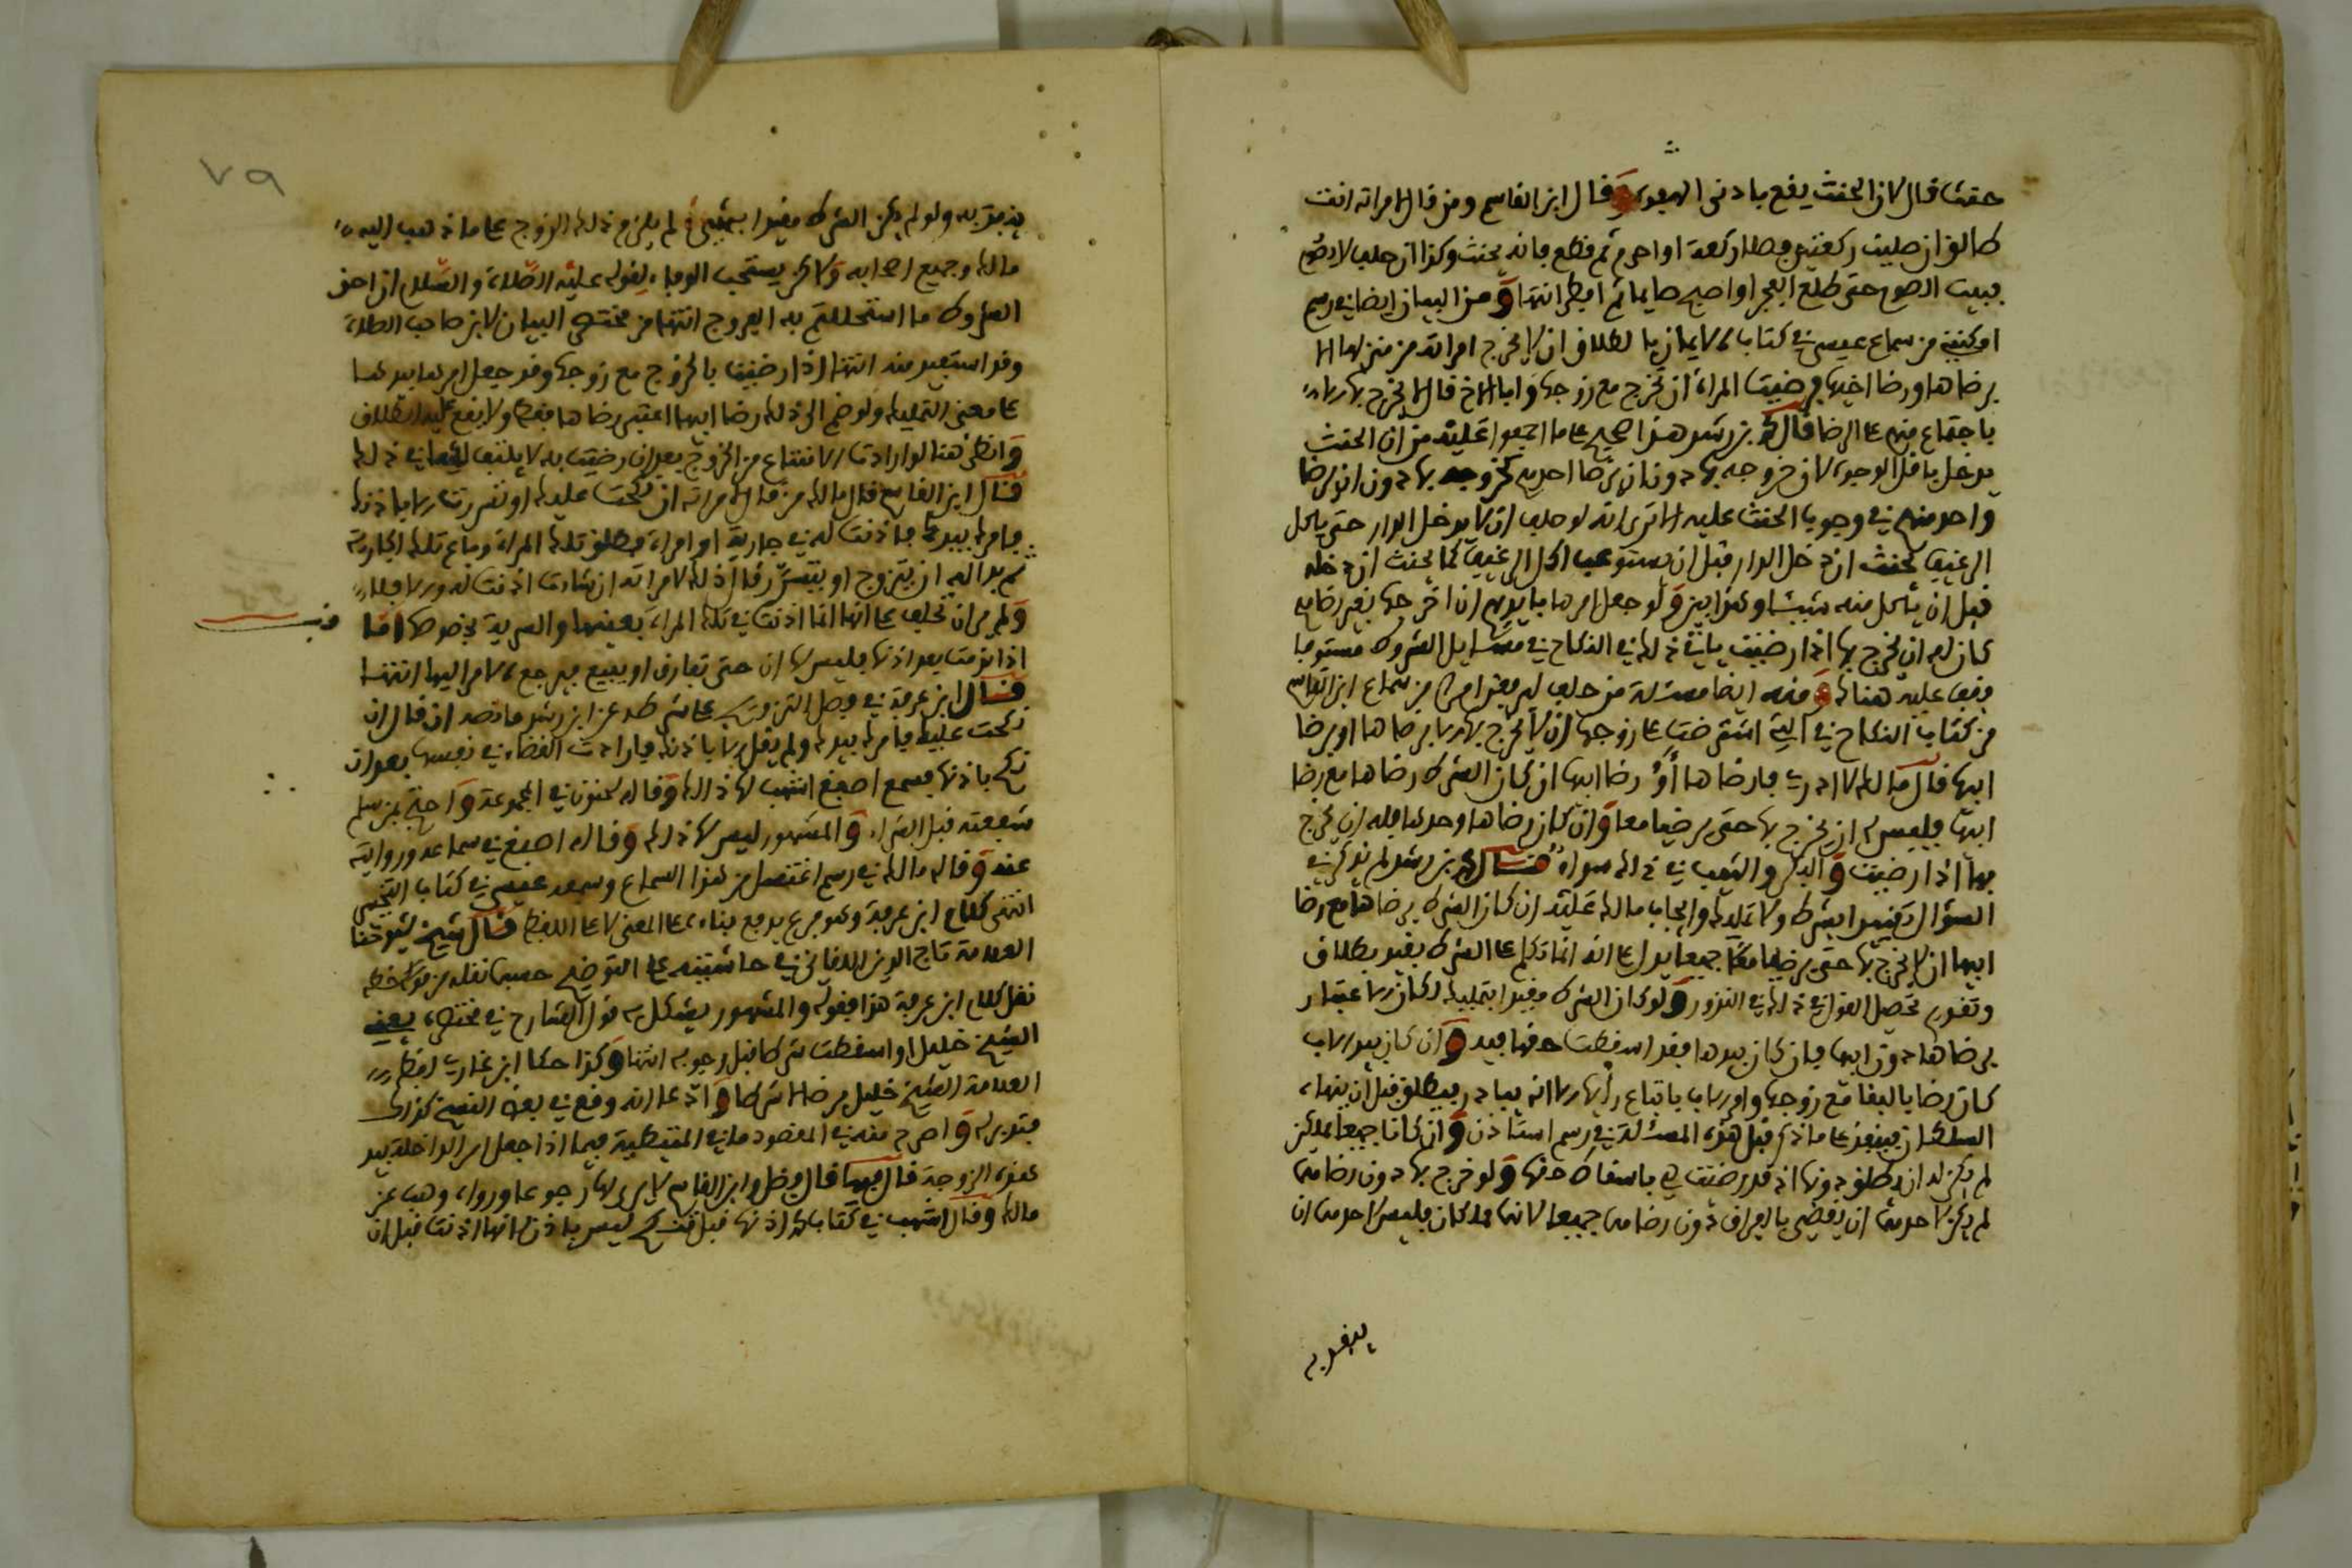 حنثت قال لان الحنث يقع بادنى الوجوه وقال ابن القاسم ومن قال لامراته انت
طالق ان صليت ركعتين فصلا ركعة او احرم ثم قطع فانه يحنث وكذا ان حلف لا يصوم
فبيت الصوم حتى طلع الفجر او اصبح صايما ثم افطر انتها ومن البيان ايضا في رسم
اوكتبته من سماع عيسى في كتاب الايمان بالطلاق ان لا يخرج امراته من منزلها الا
برضاها ورضا اخيها فرضيت المراة ان تخرج مع زوجها وابا الاخ قال لا يخرج بها الا
باجتماع منهم على الرضا قال ابن رشد هذا صحيح على ما اجمعوا عليه من ان الحنث
يدخل باقل الوجوه لان خروجه بها دون ان يرضا احدهم كخروجه بها دون ان يرضا
واحد منهم في وجوب الحنث عليه الا ترى انه لو حلف ان لا يدخل الدار حتى ياكل
الرغيف لحنث ان دخل الدار قبل ان يستوعب اكل الرغيف كما يحنث ان دخله
قبل ان ياكل منه شيئا وهذا بين ولو جعل امرها بايديهم ان اخرجها بغير رضاهم
كان له ان يخرج بها اذا رضيت ياتي ذلك في النكاح في مسايل الشروط مستوفيا
فقف عليه هناك ومنه ايضا مسئلة من حلف ليرفعن امرا من سماع ابن القاسم
من كتاب النكاح في التي اشترطت على زوجها ان لا يخرج بها الا برضاها او برضا
ابيها قال مالك لا ادري ما رضاها او رضا ابيها ان كان الشرط رضاها مع رضا
ابيها فليس له ان يخرج بها حتى يرضيا معا وان كان رضاها وحدها فله ان يخرج
بها اذا رضيت والبكر والثيب في ذلك سواء قال ابن رشد لم يذكر في
السؤال تقييد الشرط ولا تمليك واجاب مالك عليه ان كان الشرط برضاها مع رضا
ابيها ان لا يخرج بها حتى يرضيا معا جميعا يدل على انه انما تكلم على الشرط بقيد بطلاق
وتقدم تحصيل القول في ذلك في النذور ولو كان الشرط مقيدا بتمليك لكان الاعتبار
برضاها دون ابيها فان كان بيدها فقد اسقطت حقها فيه وان كان بيد الاب
كان رضا بالبقا مع زوجها وامر الاب باتباع رايها الا انه يبادر فيطلق قبل ان ينهاه
السلطان فينفذ على ما ذكر قبل هذه المسئلة في رسم استاذن وان كانا جميعا يملكن
لم يكن له ان يطلق دونها اذ قد رضيت هي باسقاط حقها ولو خرج بها دون رضاهما
لم يكن لاحدهما ان يقضي بالفراق دون رضاهما جميعا لانهما يملكان فليس لاحدهما ان
ينفرد
٧٩
ينفرد به ولو لم يكن الشرط مقيدا بشيء لم يلزم ذلك الزوج على ما ذهب اليه
مالك وجميع اصحابه ولاكن يستحب الوفاء لقوله عليه الصلاة والسلام ان احق
الشروط ما استحللتم به الفروج انتها من مختصر البيان لابن صاحب الصلاة
وقد استفيد منه انتها اذا رضيت بالخروج مع زوجها وقد جعل امرها بيدها
على معنى التمليك ولو ضم الى ذلك رضا ابيها اعتبر رضاها فقط ولا يقع عليه الطلاق
وانظر هنا لو ارادت الامتناع من الخروج بعد ان رضيت به لا يلتفت لها في ذلك
قال ابن القاسم قال مالك من قال لامراته ان نكحت عليك او تسررت الا باذنك
فامرك بيدك فاذنت له في جارية او امراة فطلق تلك المراة وباع تلك الجارية
ثم بدا له ان يتزوج او يتسرر قال ذلك لامراته ان شاءت اذنت له والا فلا
ولم ير ان تحلف على انها انما اذنت في تلك المراة بعينها والسرية بخصوصها اما
قف
اذا نزعت بعد اذنها فليس لها ان حتى تفارق او يبيع فيرجع الامر اليها انتها
قال ابن عرفة في فصل التزويج على شرط عن ابن رشد ما نصه ان قال ان
نكحت عليك فامرك بيدك ولم يقل الا باذنك فارادت القضاء في نفسها بعد ان
نكح باذنها فسمع اصبغ اشهب لها ذلك وقاله سحنون في المجموعة واحتج بمن سلم
شفعته قبل الشراء والمشهور ليس لها ذلك وقاله اصبغ في سماعه وروايته
عنه وقاله مالك في رسم اغتسل من هذا السماع وسمعه عيسى في كتاب التخيير
انتهى كلام ابن عرفة وهو فرع بديع بناه على المعنى لا على اللفظ قال شيخ شيوخنا
العلامة تاج الدين اللقاني في حاشيته على التوضيح حسبما نقله من خطه
نقل كلام ابن عرفة هذا فقوله والمشهور يشكل به قول الشارح في مختصره يعني
الشيخ خليل او اسقطت شرطا قبل وجوبه انتها وكذا حكا ابن غازي لفظ
العلامة الشيخ خليل برضا الاشرط وادعا انه وقع في بعض النسخ كذلك
فتدبره واصرح منه في المقصود ما في المتيطية فيما اذا جعل امر الداخلة بيد
هذه الزوجة قال فيها قال فضل وابن القاسم لا يرى لها رجوعا ورواه وهب عن
مالك وقال اشهب في كتابه اذنها قبل نسخ ليس باذن لانها اذنت قبل ان